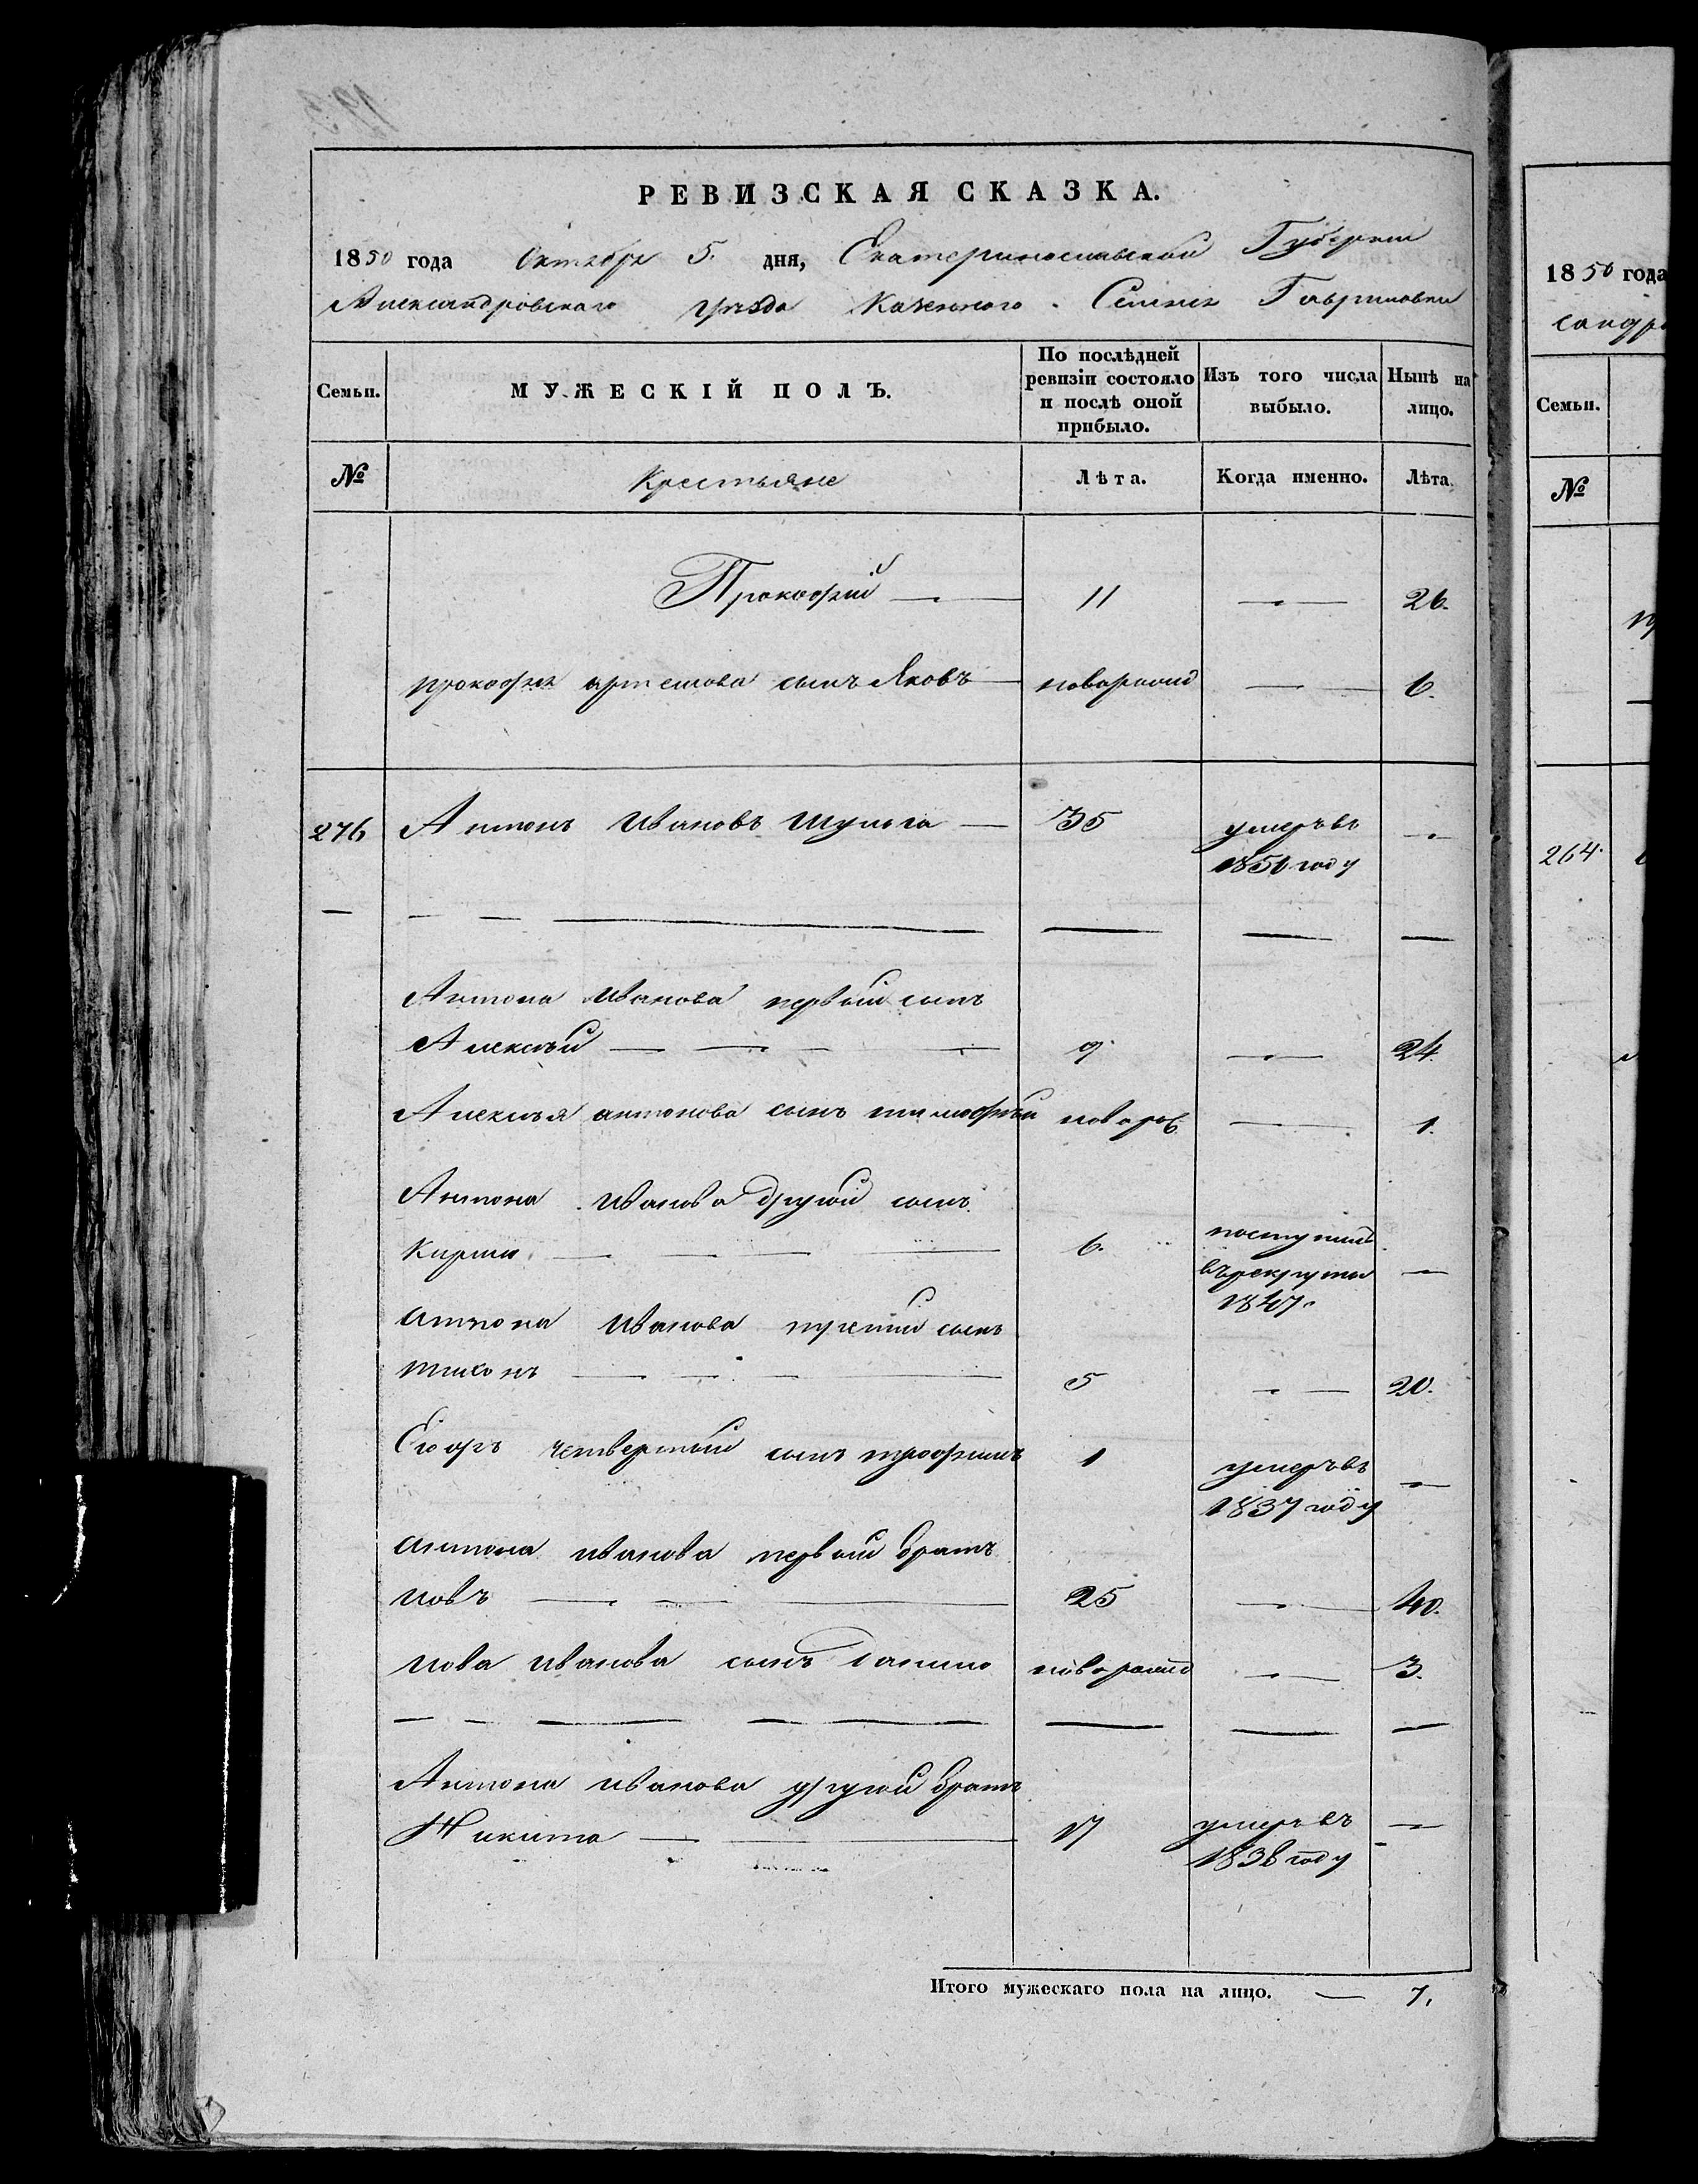 РЕВИЗСКАЯ СКАЗКА.
1850 года Октября 5. дня, Екатеринославской Губернии
Александровского уезда Казенного Селения Гавриловки
Семьи. МУЖЕСКІЙ ПОЛЪ. По послѣдней ревизіи состояло и послѣ оной прибыло. Изъ того числа выбыло. Нынѣ на лицо.
№ Крестьяне Лѣта. Когда именно. Лѣта.
Прокофий — 11 — 26.
Прокофия Артемова сынъ Яковъ — новорожд — 6.
276 Антонъ Ивановъ Шульга — 35 умеръ въ —
1850 году
Антона Иванова первый сынъ
Алексѣй — 9 — 24.
Алексѣя Антонова сынъ Тимофѣй новорож — 1.
Антона Иванова другой сынъ
Кирило — 6. поступилъ
въ рекруты —
1847.
Антона Иванова третий сынъ
Тихонъ — 5 — 20.
Его четвертый сынъ Трофимъ 1 умеръ въ —
1837 году
Антона Иванова первый братъ
Иовъ — 25 — 40.
Иова Иванова сынъ Данило новорожд — 3.
Антона Иванова другой братъ
Никита — 17 умеръ въ —
1838 году
Итого мужескаго пола на лицо. — 7.
1850 года
сандро
Семьи.
№
264.